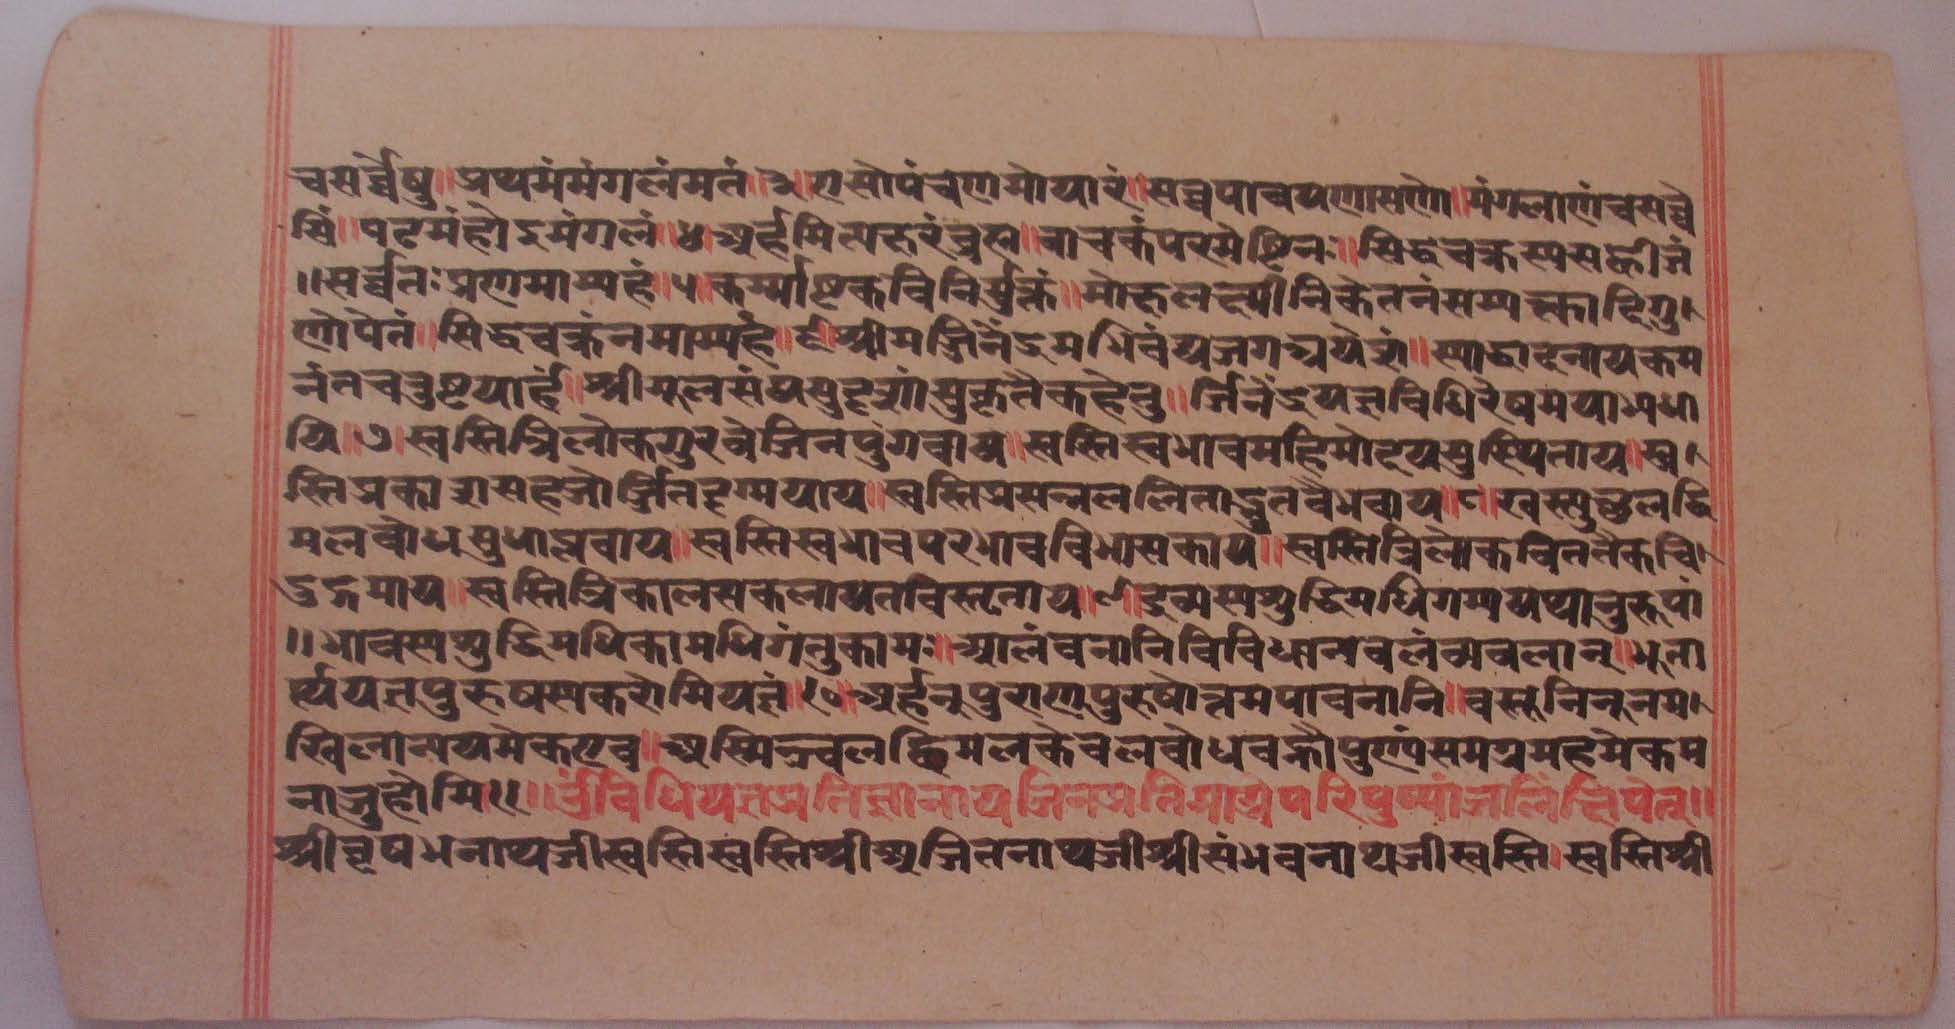 चसर्व्वेषु॥प्रथमंमंगलंमतं॥३॥एसोपंचणमोयारं॥सव्वपावपणासणो॥मंगलाणंचसव्वे
सिं॥पढमंहोइमंगलं॥४॥अर्हमित्यक्षरंब्रह्म॥वाचकंपरमेष्टिनः॥सिद्धचक्रस्यसद्बीजं
॥सर्व्वतःप्रणमाम्यहं॥५॥कर्म्माष्टकविनिर्मुक्तं॥मोक्षलक्ष्मीनिकेतनंसम्यक्त्कादिगु।
णोपेतं॥सिद्धचक्रंनमाम्यहं॥६॥श्रीमज्जिनेंद्रमभिवंद्यजगत्रयेशं॥स्याद्वादनायकम
नंतचतुष्टयार्हं॥श्रीमूलसंघसुदृशांसुकृतैकहेतु॥र्जिनेंद्रयज्ञविधिरेषमयाभ्यधा
यि॥७॥स्वस्तित्रिलोकगुरवेजिनपुंगवाय॥स्वस्तिस्वभावमहिमोदयसुस्थिताय॥स्व।
स्तिप्रकाशसहजोर्जितदृग्मयाय॥स्वस्तिप्रसन्नललिताद्भुतवैभवाय॥८॥स्वस्त्युच्छलद्वि
मलबोधसुधाप्लवाय॥स्वस्तिस्वभावपरभावविभासकाय॥स्वस्तित्रिलोकविततैकचि।
दुद्गमाय॥स्वस्तित्रिकालसकलायतविस्तृताय॥९॥द्रव्यस्यशुद्धिमधिगम्ययथानुरूपां
॥भावस्यशुद्धिमधिकामधिगंतुकामः॥आलंबनानिविविधान्यवलंब्यवलान्॥भूता
र्थ्ययज्ञपुरुषस्यकरोमियज्ञं॥१०॥अर्हन्पुराणपुरुषोत्तमपावनानि॥वस्तूनिनूनम।
खिलान्ययमेकएव॥अस्मिन्ज्वलद्विमलकेवलबोधवह्नौपुण्यंसमग्रमहमेकम
नाजुहोमि॥॥ॐविधियज्ञप्रतिज्ञानायजिनप्रतिमाग्रेपरिपुष्पांजलिंक्षिपेत्॥
श्रीवृषभनाथजीस्वस्तिस्वस्तिश्रीअजितनाथजीश्रीसंभवनाथजीस्वस्ति।स्वस्तिश्री